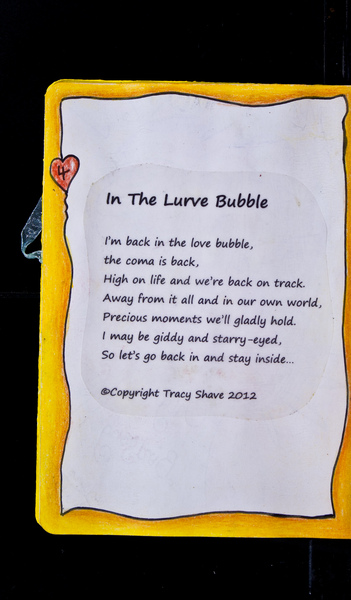 4
In The Lurve Bubble
I'm back in the love bubble,
the coma is back,
High on life and we're back on track.
Away from it all and in our own world,
Precious moments we'll gladly hold.
I may be giddy and starry-eyed,
So let's go back in and stay inside...
©Copyright Tracy Shave 2012